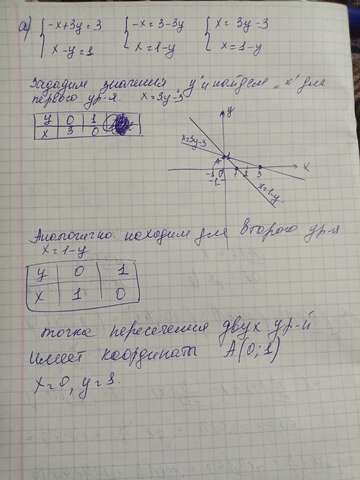 а) { -x+3y=3 { -x=3-3y { x=3y-3
x-y=1 x=1-y x=1-y
Зададим значения "y" и найдем "x" для
первого ур-я. x=3y-3
y 0 1
x 3 0
y
x=3y-3
A 1
-1 0 1 2 3 x
-1
x=1-y
Аналогично находим для второго ур-я
x=1-y
y 0 1
x 1 0
точка пересечения двух ур-й
Имеет координаты A(0;1)
x=0, y=1.